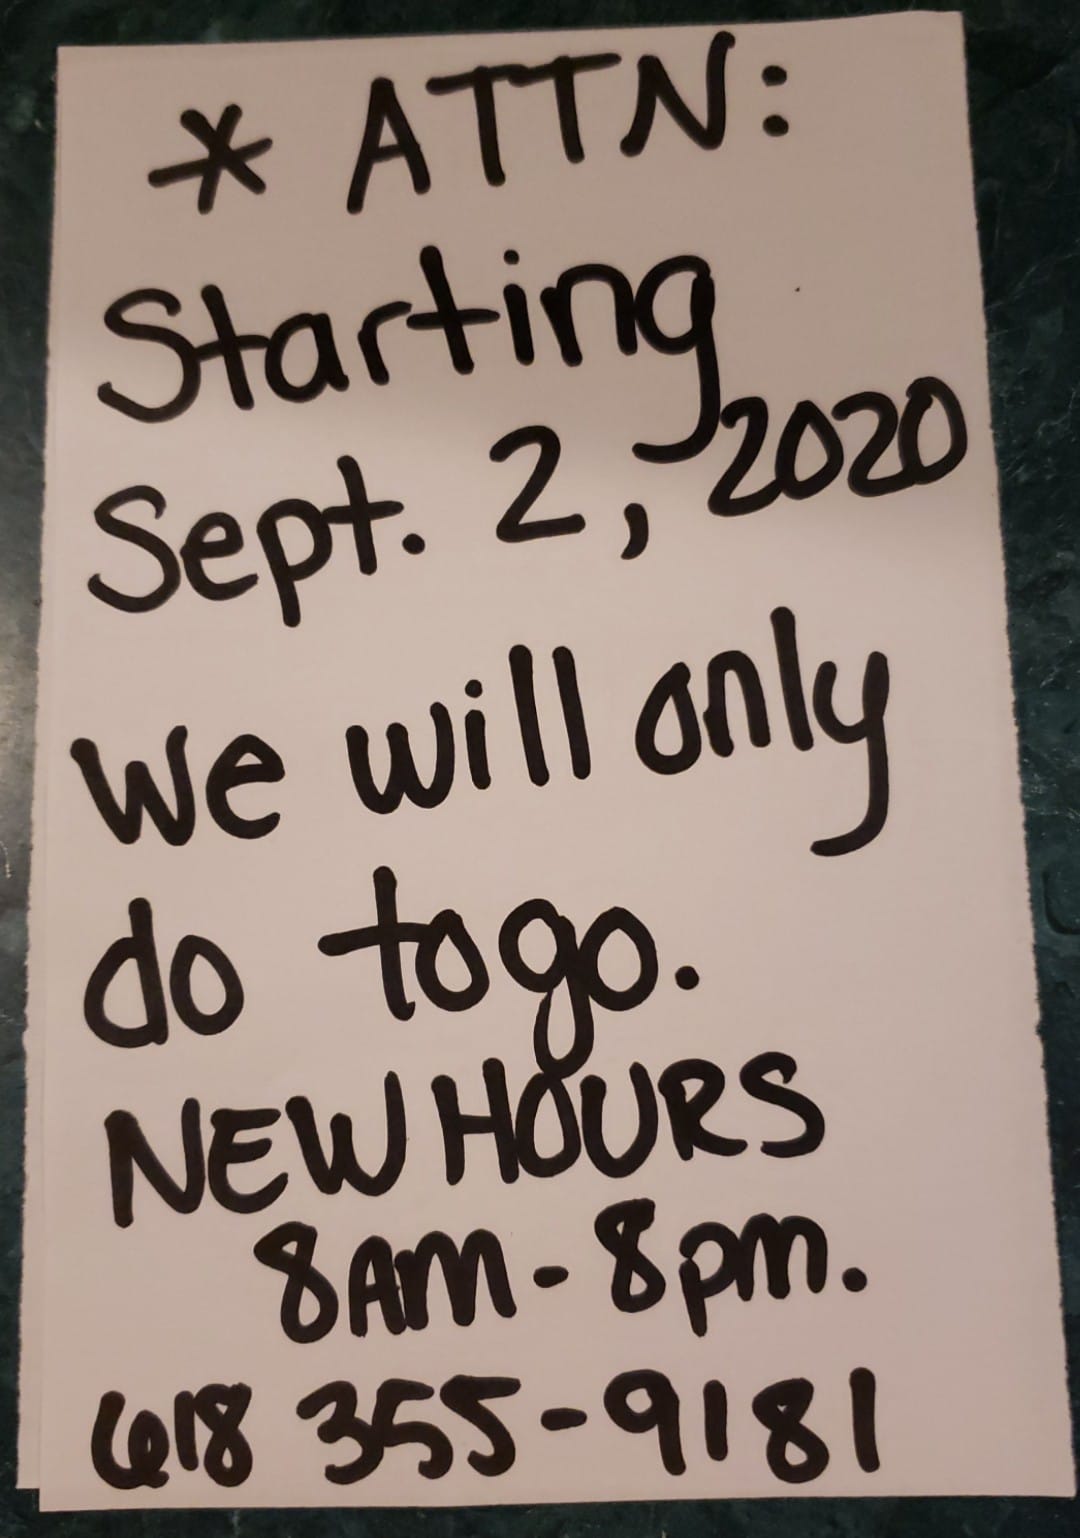 * ATTN:
Starting
Sept. 2, 2020
We will only
do togo.
NEW HOURS
8AM-8pm.
618 355-9181